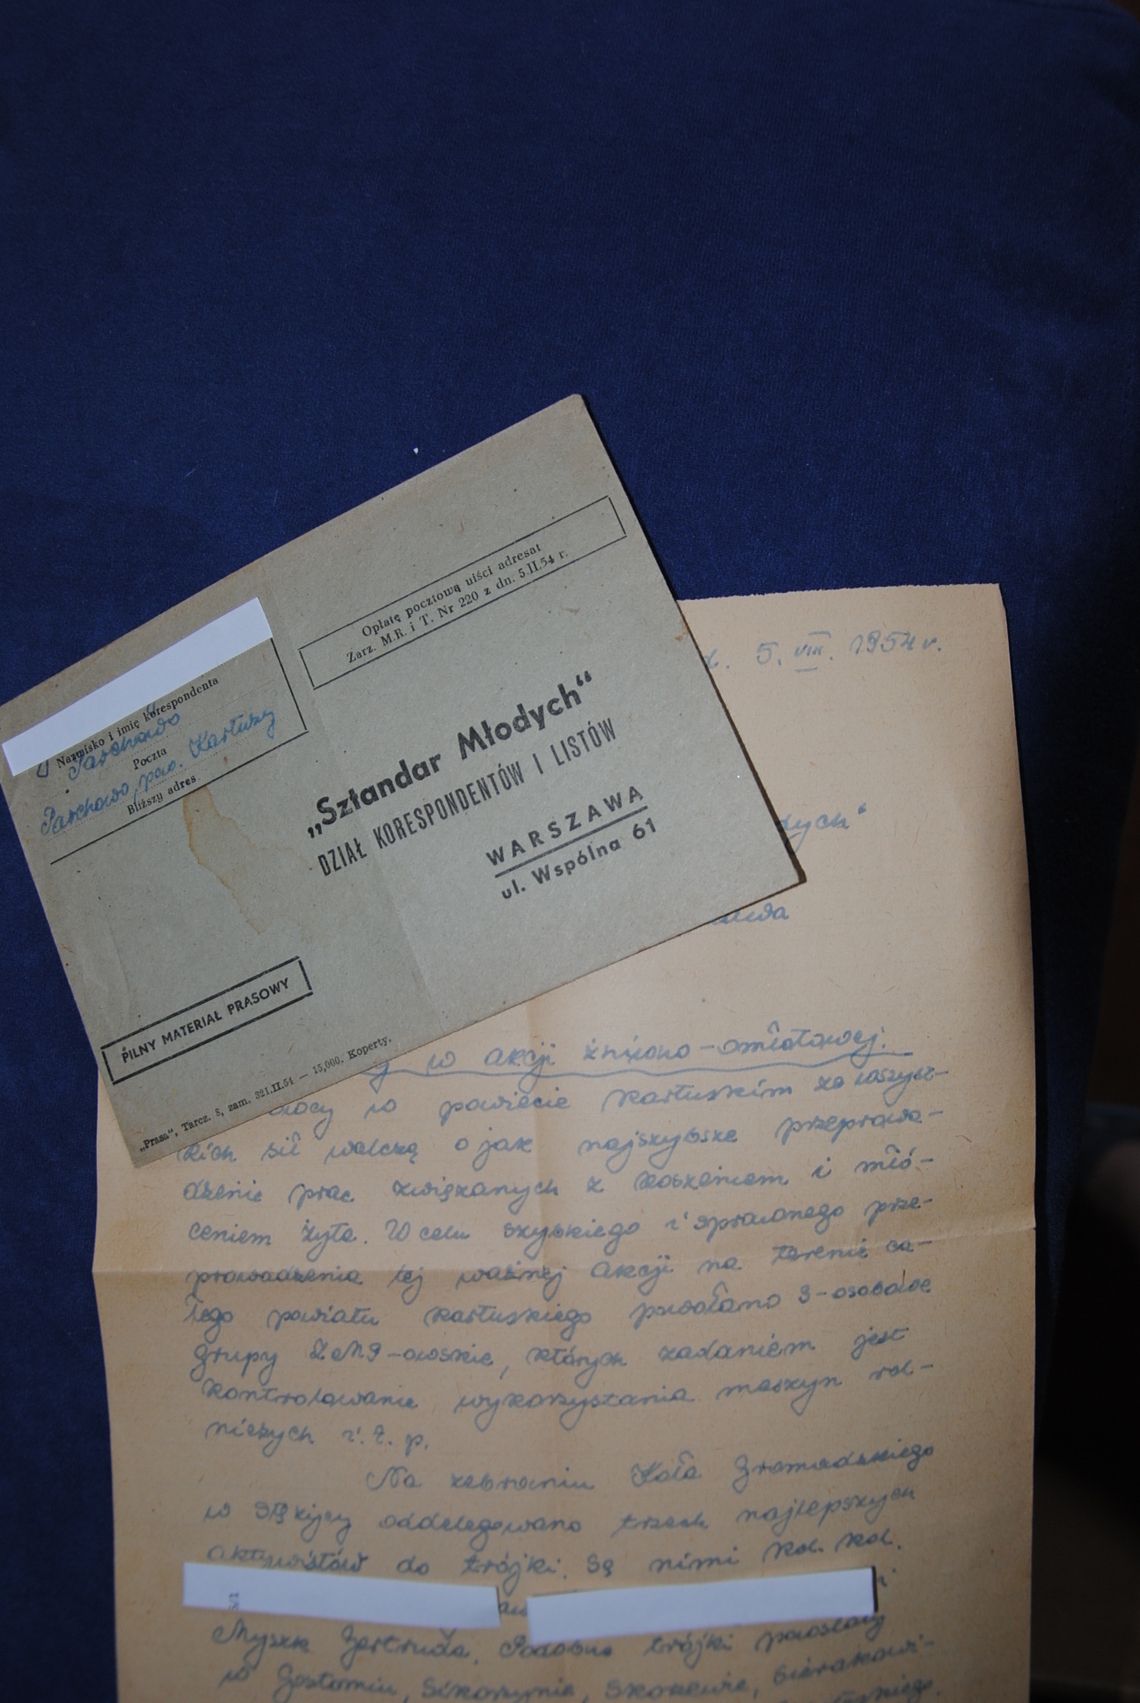 Opłatę pocztową uiści adresat
Zarz. M.R. i T. Nr 220 z dn. 5.II.54 r.
Nazwisko i imię korespondenta
Parchowo
Poczta
Parchowo, pow. Kartuzy
Bliższy adres
„Sztandar Młodych“
DZIAŁ KORESPONDENTÓW I LISTÓW
WARSZAWA
ul. Wspólna 61
PILNY MATERIAŁ PRASOWY
„Prasa“, Tarcz. 8, zam. 321.II.54 — 15,000. Koperty.
5. VIII. 1954 r.
dych“
w akcji żniwno-omłotowej.
w powiecie kartuskim ze wszyst-
kich sił walczą o jak najszybsze przeprowa-
dzenie prac związanych z koszeniem i młó-
ceniem żyta. W celu szybkiego i sprawnego prze-
prowadzenia tej ważnej akcji na terenie ca-
łego powiatu kartuskiego powołano 3-osobowe
grupy ZMP-owskie, których zadaniem jest
kontrolowanie wykorzystania maszyn rol-
niczych i t. p.
Na zebraniu Koła Gromadzkiego
w oddelegowano trzech najlepszych
aktywistów do trójki. Są nimi kol. kol.
i
Myszk Gertruda. Podobne trójki powstały
w Gostomiu, Sikorzynie, Skorzewie, Sierakowi-